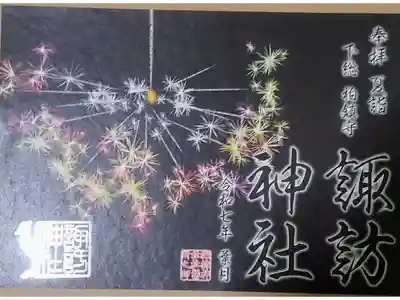 奉拝 夏詣
下総 柏鎮守
諏訪
神社
令和七年 葉月